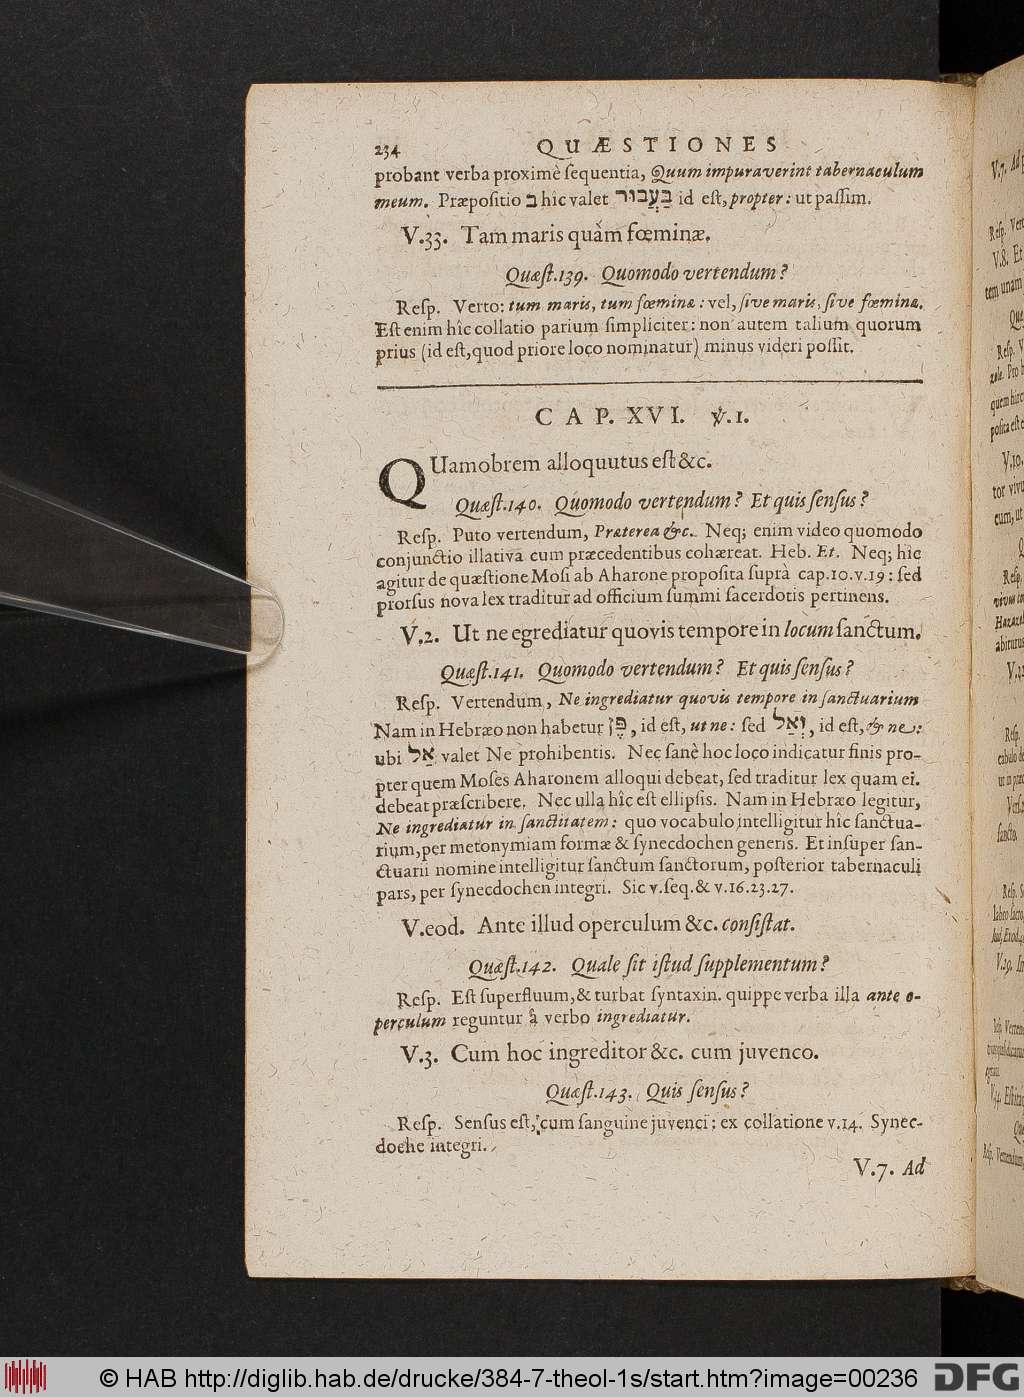 234 QUÆSTIONES
probant verba proximè ſequentia, Quum impuraverint tabernaculum
meum. Præpoſitio ב hîc valet בַּעֲבוּר id eſt, propter: ut paſſim.
V.33. Tam maris quàm fœminæ.
Quæſt.139. Quomodo vertendum?
Reſp. Verto: tum maris, tum fœminæ: vel, ſive maris, ſive fœminæ.
Eſt enim hîc collatio parium ſimpliciter: non autem talium quorum
prius (id eſt, quod priore loco nominatur) minus videri poſſit.
CAP. XVI. V.1.
QUamobrem alloquutus eſt &c.
Quæſt.140. Quomodo vertendum? Et quis ſenſus?
Reſp. Puto vertendum, Præterea &c. Neq; enim video quomodo
conjunctio illativa cum præcedentibus cohæreat. Heb. Et. Neq; hîc
agitur de quæſtione Moſi ab Aharone propoſita ſuprà cap.10.v.19: ſed
prorſus nova lex traditur ad officium ſummi ſacerdotis pertinens.
V.2. Ut ne egrediatur quovis tempore in locum ſanctum.
Quæſt.141. Quomodo vertendum? Et quis ſenſus?
Reſp. Vertendum, Ne ingrediatur quovis tempore in ſanctuarium
Nam in Hebræo non habetur פֶּן, id eſt, ut ne: ſed וְאַל, id eſt, & ne:
ubi אַל valet Ne prohibentis. Nec ſanè hoc loco indicatur finis pro-
pter quem Moſes Aharonem alloqui debeat, ſed traditur lex quam ei
debeat præſcribere. Nec ulla hîc eſt ellipſis. Nam in Hebræo legitur,
Ne ingrediatur in ſanctitatem: quo vocabulo intelligitur hîc ſanctua-
rium, per metonymiam formæ & ſynecdochen generis. Et inſuper ſan-
ctuarii nomine intelligitur ſanctum ſanctorum, poſterior tabernaculi
pars, per ſynecdochen integri. Sic v.ſeq. & v.16.23.27.
V.eod. Ante illud operculum &c. conſiſtat.
Quæſt.142. Quale ſit iſtud ſupplementum?
Reſp. Eſt ſuperfluum, & turbat ſyntaxin. quippe verba illa ante o-
perculum reguntur à verbo ingrediatur.
V.3. Cum hoc ingreditor &c. cum juvenco.
Quæſt.143. Quis ſenſus?
Reſp. Senſus eſt, cum ſanguine juvenci: ex collatione v.14. Synec-
doche integri.
V.7. Ad
© HAB http://diglib.hab.de/drucke/384-7-theol-1s/start.htm?image=00236
DFG